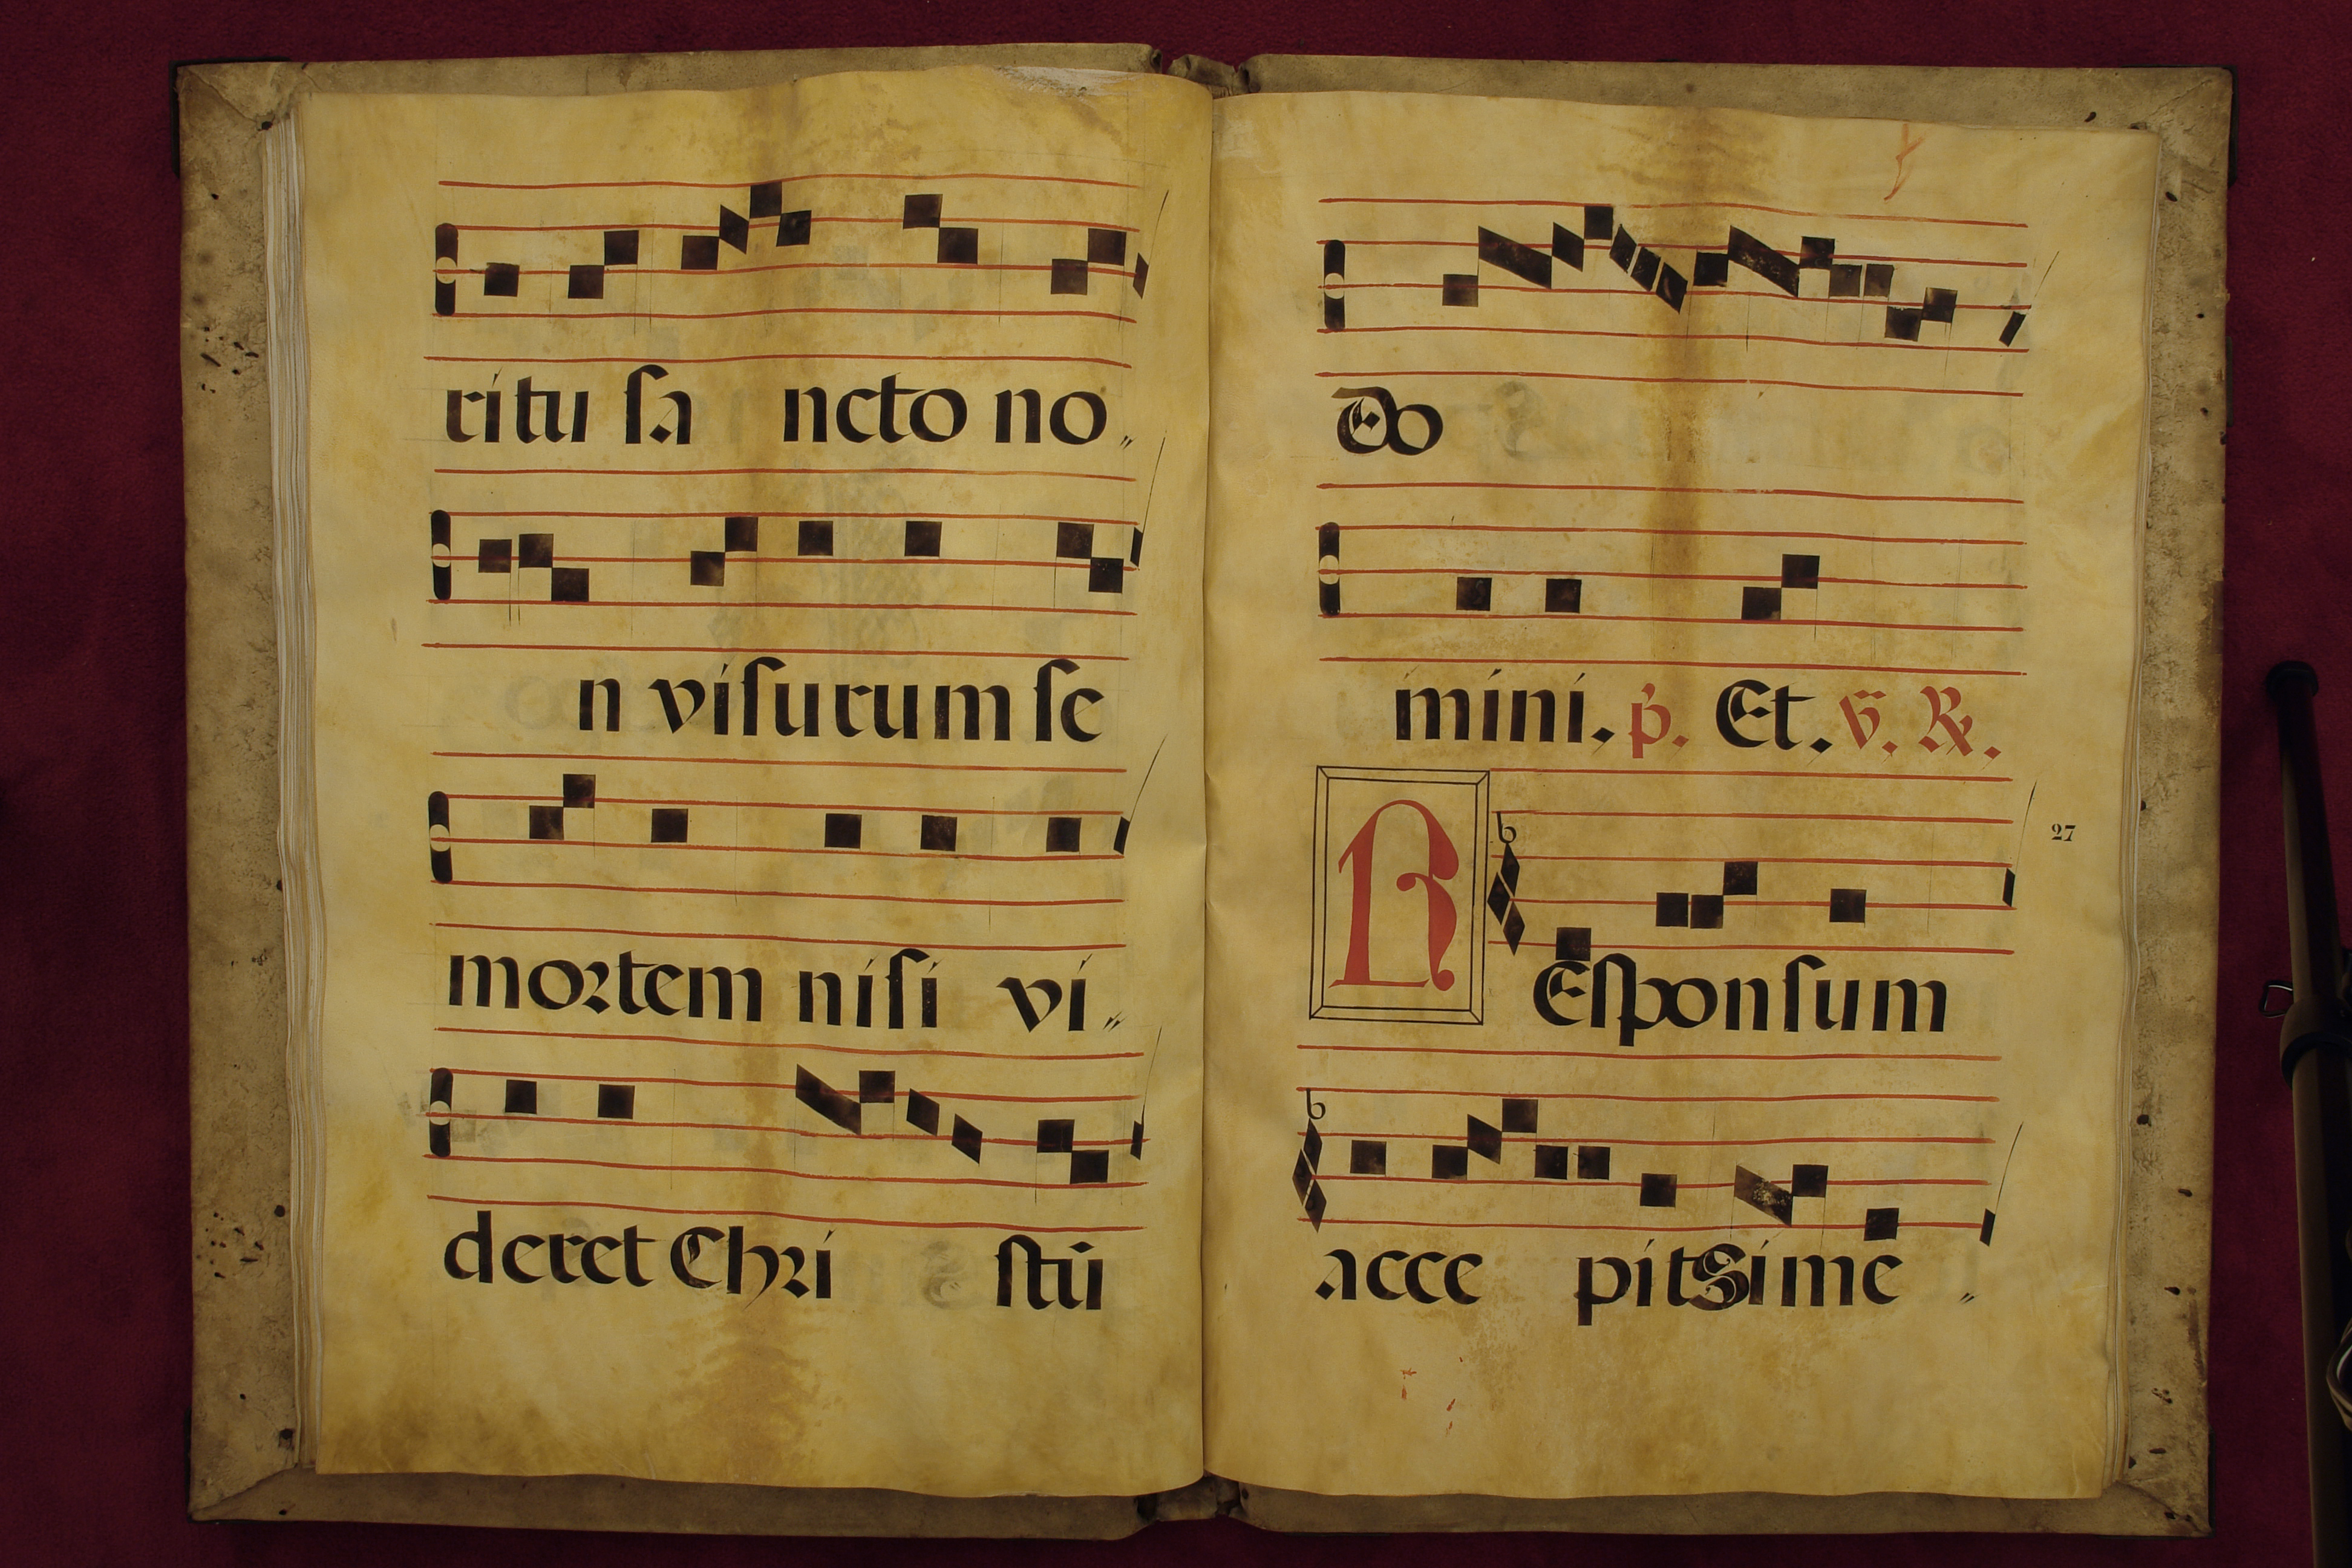 ritu sa ncto no„
n visurum se
mortem nisi vi„
deret Chri stū
Do
mini. p̄. Et. v̄. ℟.
27
R Esponsum
acce pit Sime „